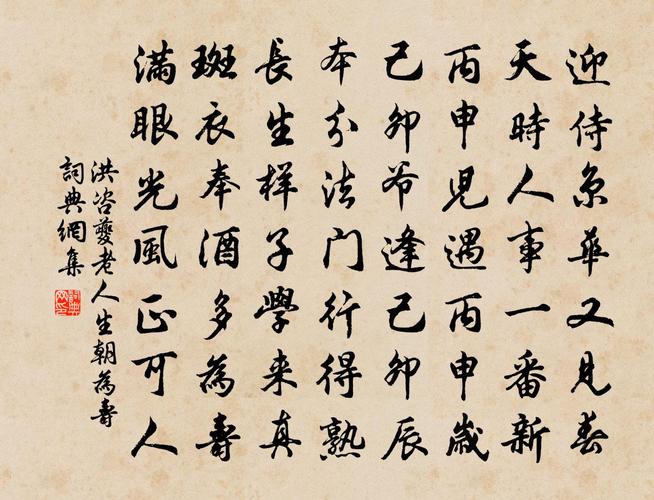 迎侍京華又見春
天時人事一番新
丙申児遇丙申歲
己卯爷逢己卯辰
本分法门行得熟
長生样子學来真
斑衣奉酒多為壽
滿眼光風正可人
洪咨夔老人生朝為壽
詞典網集